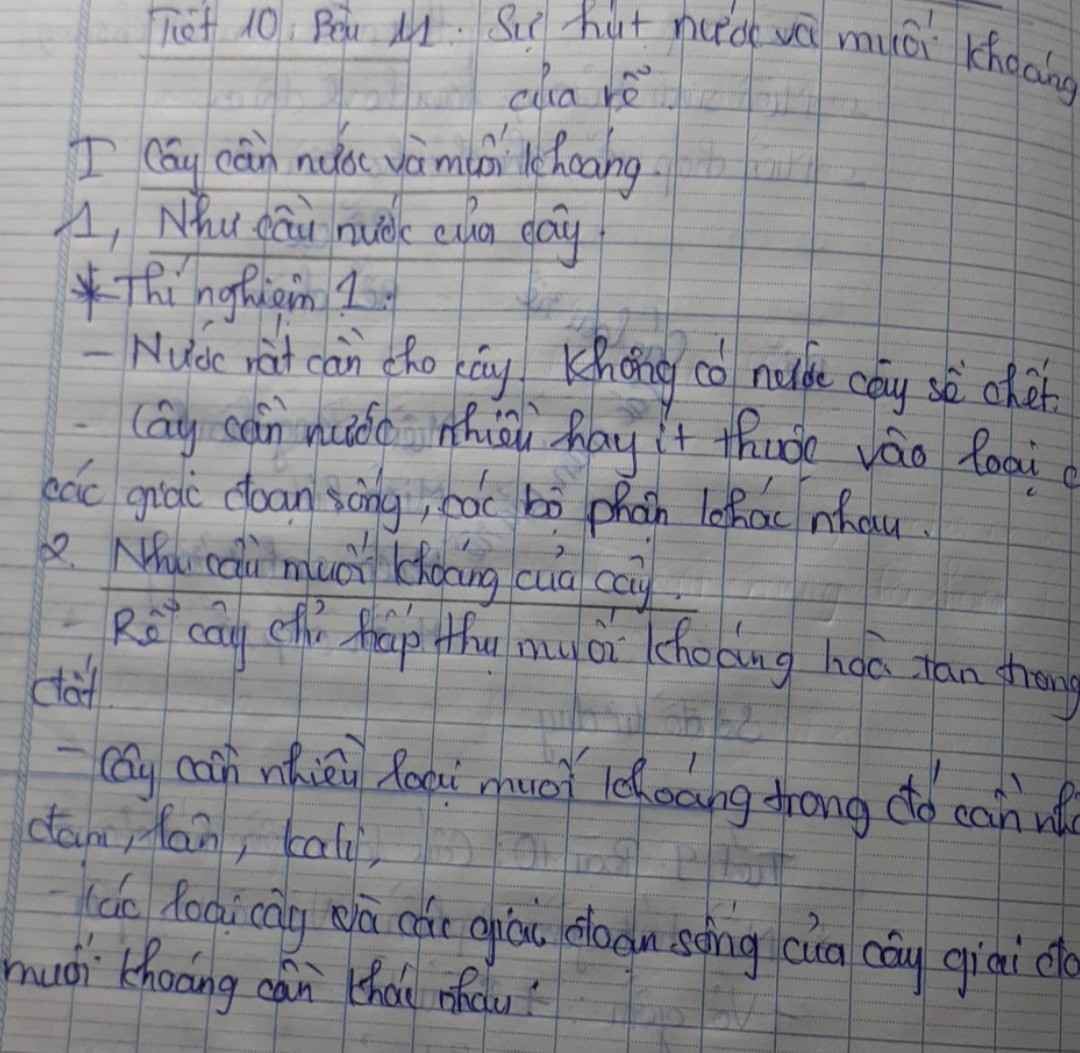 Tiết 10: Bài 11. Sự hút nước và muối khoáng
của rễ
I Cây cần nước và muối khoáng
1, Nhu cầu nước của cây.
* Thí nghiệm 1:
- Nước rất cần cho cây. Không có nước cây sẽ chết.
- Cây cần nước nhiều hay ít thuộc vào loại c
các giai đoạn sống, các bộ phận khác nhau.
2. Nhu cầu muối khoáng của cây.
- Rễ cây chỉ hấp thụ muối khoáng hòa tan trong
đất.
- Cây cần nhiều loại muối khoáng trong đó cần nh
đạm, lân, kali,
- Các loại cây và các giai đoạn sống của cây giai đo
muối khoáng cần khác nhau.